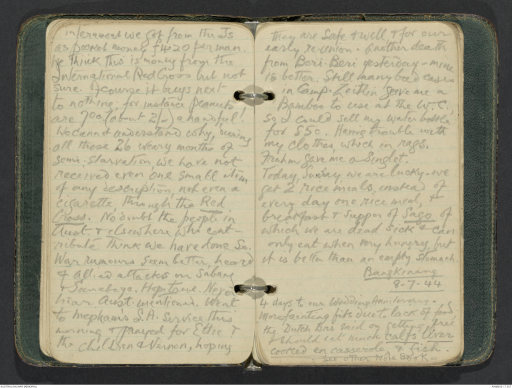 internment we got from the Js
as pocket money f4.20 per man.
We think this is money from the
International Red Cross but not
sure. Of course it buys next
to nothing, for instance peanuts
are 70¢ (about 2/-) a handful!
We cannot understand why, during
all those 26 weary months of
semi-starvation we have not
received even one small item
of any description, not even a
cigarette, through the Red
Cross. No doubt the people in
Aust & elsewhere who cont-
ribute think we have done so.
War rumours seem better, heard
of allied attacks on Sabang
& Soerabaja. Hope true. Never
hear Aust mentioned. Went
to Mepham's S.A. Service this
morning & prayed for Elsie &
the Children & Vernon, hoping
they are safe & well & for our
early re-union. Another death
from Beri-Beri yesterday - mine
is better. Still many bad cases
in Camp. gave me a
Bamboo to use at the W.C.
So I could sell my water bottle
for Having trouble with
my clothes, which in rags.
gave me a singlet.
Today, Sunday, we are lucky - we
get 2 rice meals, instead of
every day one rice meal, &
breakfast & supper of Sago of
which we are dead sick & can
only eat when very hungry, but
it is better than an empty stomach
Bangkinang
8-7-44
4 days to our Wedding Anniversary.
More fainting fits due to lack of food,
the Dutch Dr said on getting free
I should eat much calfs liver
cooked en casserole & fish.
See other Note Book